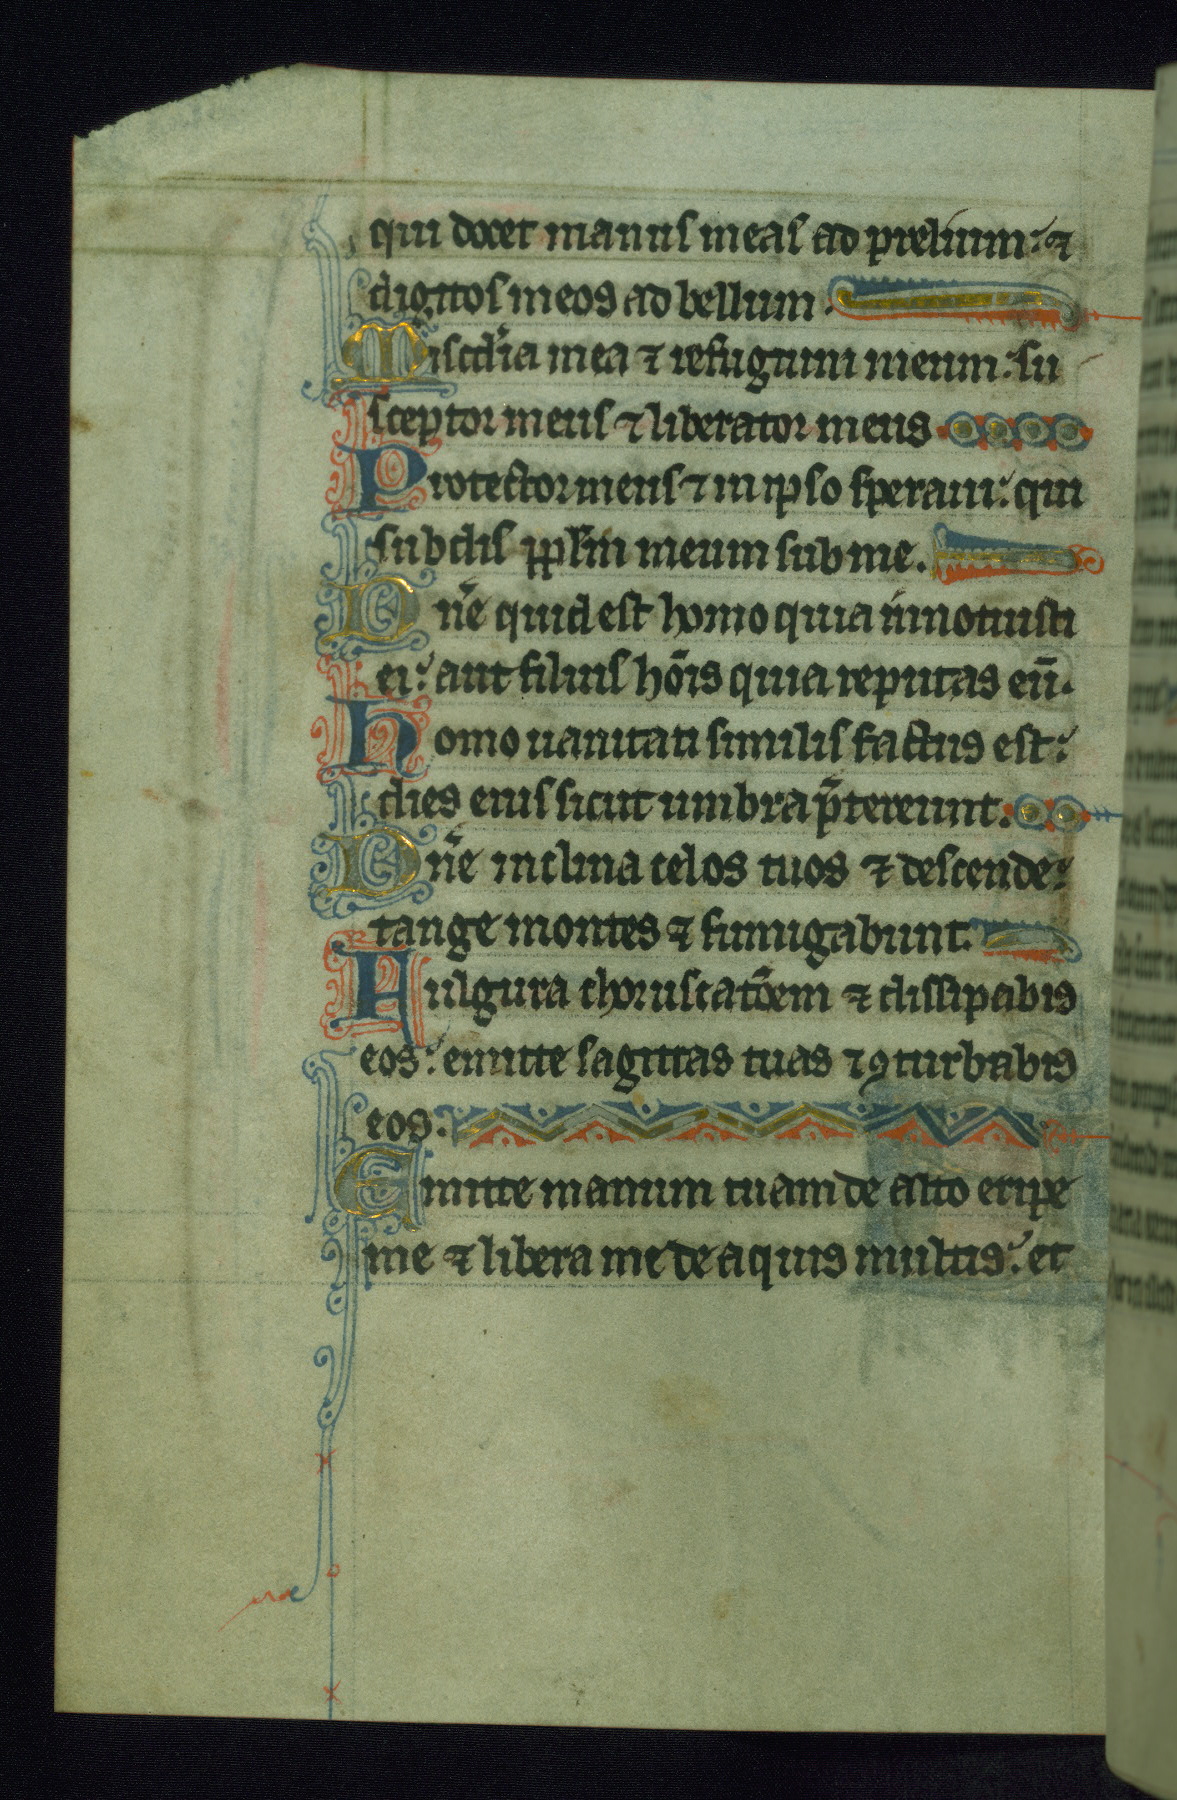 qui docet manus meas ad prelium: ⁊
digitos meos ad bellum.
Miscd̾ia mea ⁊ refugium meum: su
sceptor meus ⁊ liberator meus
Protector meus ⁊ in ipso speraui: qui
subdis pp̄lm meum sub me.
Dn̄e quid est homo quia innotuisti
ei: aut filius hōis quia reputas eū.
homo uanitati similis factus est:
dies eius sicut umbra p̄tereunt.
Dn̄e inclina celos tuos ⁊ descende:
tange montes ⁊ fumigabunt.
Fulgura choruscatōem ⁊ dissipabis
eos: emitte sagittas tuas ⁊ ꝯturbabis
eos:
Emitte manum tuam de alto eripe
me ⁊ libera me de aquis multis: et